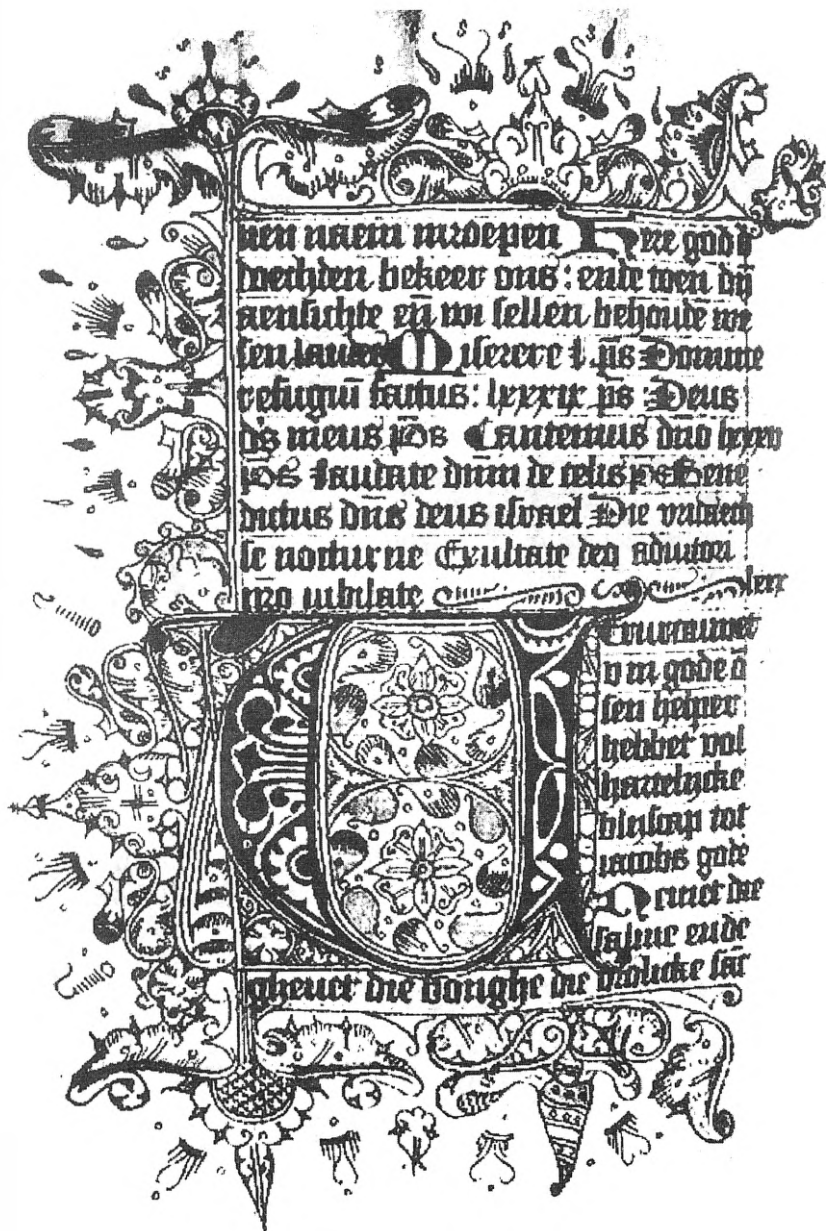 nen naem inroepen Here god d
doechden bekeer ons: ende toen dijn
aensichte eñ wi sellen behoude we
sen laudes Miserere l. ps Domine
refugiū factus: lxxxix ps Deus
ds meus ps Cantemus dño lxxxv
ps Laudate dñm de celis ps Bene
dictus dñs deus israel Die vridaech
se nocturne Exultate deo adiutori
nro iubilate lxxx
V ervrouwet
v in gode ō
sen helper
hebbet vol
hartelycke
bliscap tot
iacobs gode
Nemet die
salme ende
gheuet die bonghe die vrolicke sär